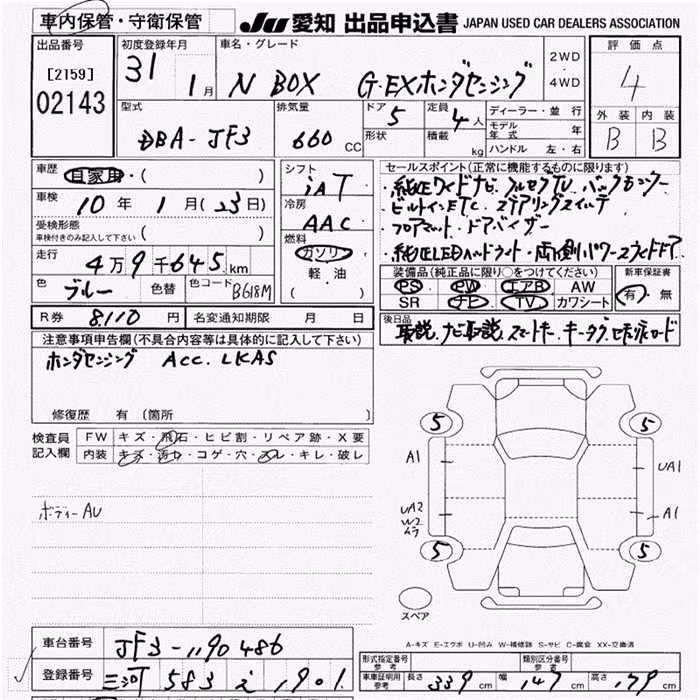 車内保管・守衛保管 JU 愛知 出品申込書 JAPAN USED CAR DEALERS ASSOCIATION
出品番号 [2159] 02143
初度登録年月 31 1月
車名・グレード N BOX G・EXホンダセンシング
2WD ・ 4WD
評価点 4
外装 内装
B B
型式 DBA-JF3
排気量 660 CC
ドア 5 定員 4人
形状 積載 kg
ディーラー・並行
モデル年式 年
ハンドル 左・右
車歴 自家用・( )
車検 10年 1月(23日)
受検形態 ( )
車検付きのみ記入して下さい
走行 4万9千645km
色 ブルー 色替 色コード B618M
シフト iAT
冷房 AAC
燃料 ガソリン
軽・油
( )
セールスポイント(正常に機能するものに限ります)
・純正ワイドナビ、フルセグTV、バックモニター
・ビルトインETC、ステアリングスイッチ
・フロアマット・ドアバイザー
・純正LEDヘッドライト・両側パワースライドドア
装備品(純正品に限り○をつけてください)
PS PW エアB AW
SR ナビ TV カワシート
新車保証書
有・無
R券 8,110円 名変通知期限 月 日
後日品 取説、ナビ取説、スマートキー、キータグ
注意事項申告欄(不具合内容等は具体的に記入して下さい)
ホンダセンシング ACC. LKAS
修復歴 有 〔箇所 〕
検査員記入欄
FW キズ・飛石・ヒビ割・リペア跡・X要
内装 キズ・汚れ・コゲ・穴・スレ・キレ・破レ
ボディーAU
5 5
A1 UA1
UA2 A1
W2
ムラ
5 5
スペア
A-キズ E-エクボ U-凹み W-補修跡 S-サビ C-腐食 XX-交換済
車台番号 JF3-1190486
登録番号 三河 583 い 1901
形式指定番号 参考 類別区分番号 参考
車庫証明用 参考 長さ 339cm 幅 147cm 高さ 179cm